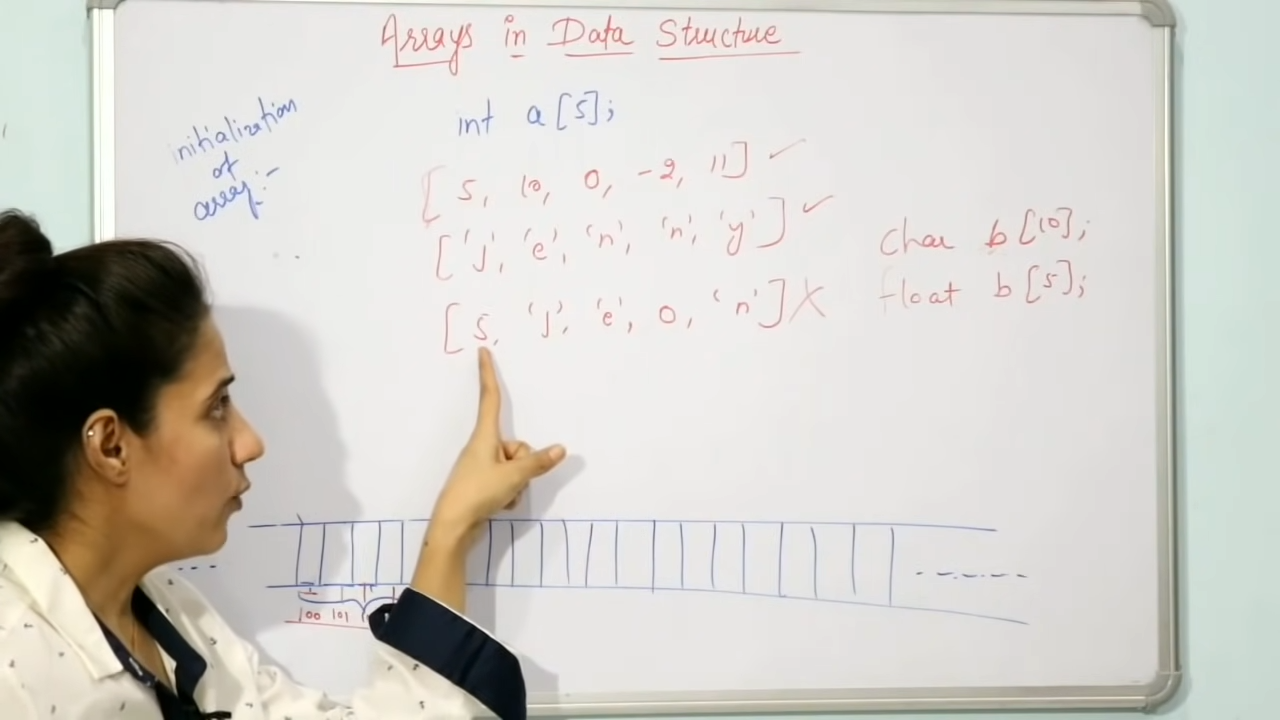 Arrays in Data Structure
initialization
of
array:-
int a[5];
[5, 10, 0, -2, 11] ✓
['j', 'e', 'n', 'n', 'y'] ✓
[5, 'j', 'e', 0, 'n'] X
char b[10];
float b[5];
100 101